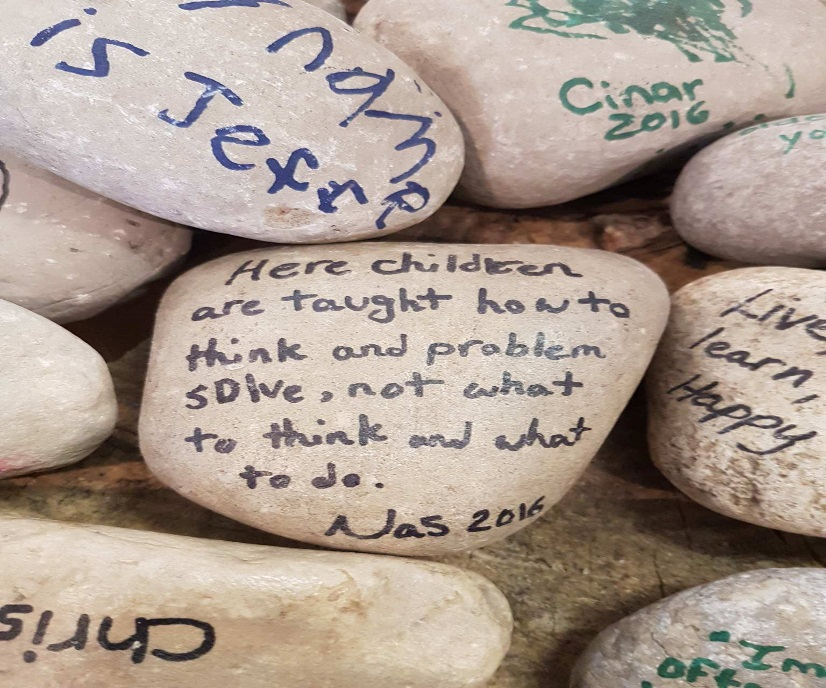 is Jexxe
Cinar
2016
yo
Here children
are taught how to
think and problem
solve, not what
to think and what
to do.
Nas 2016
Live,
learn,
Happy
Chris
"Im